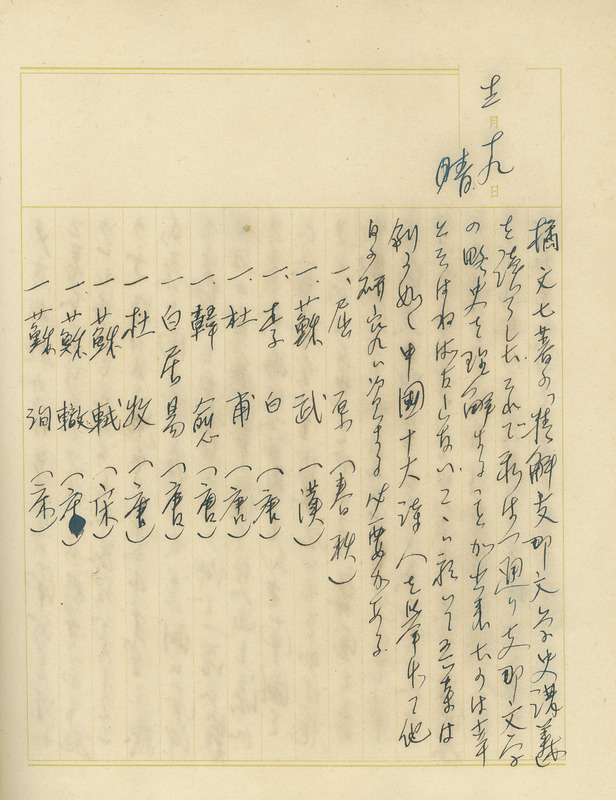 十二月
十九日
晴
橘文七著の「精解支那文学史講義」
を読了した。これで私は一通り支那文学
の略史を理解することが出来たのは幸
と云はねばならない。ここに於いて吾輩は
例の如く中国十大詩人を挙げて他
日の研究に資する必要がある。
一、屈原（春秋）
一、蘇武（漢）
一、李白（唐）
一、杜甫（唐）
一、韓愈（唐）
一 白居易（唐）
一 杜牧（唐）
一 蘇軾（宋）
一 蘇轍
一 蘇洵（宋）